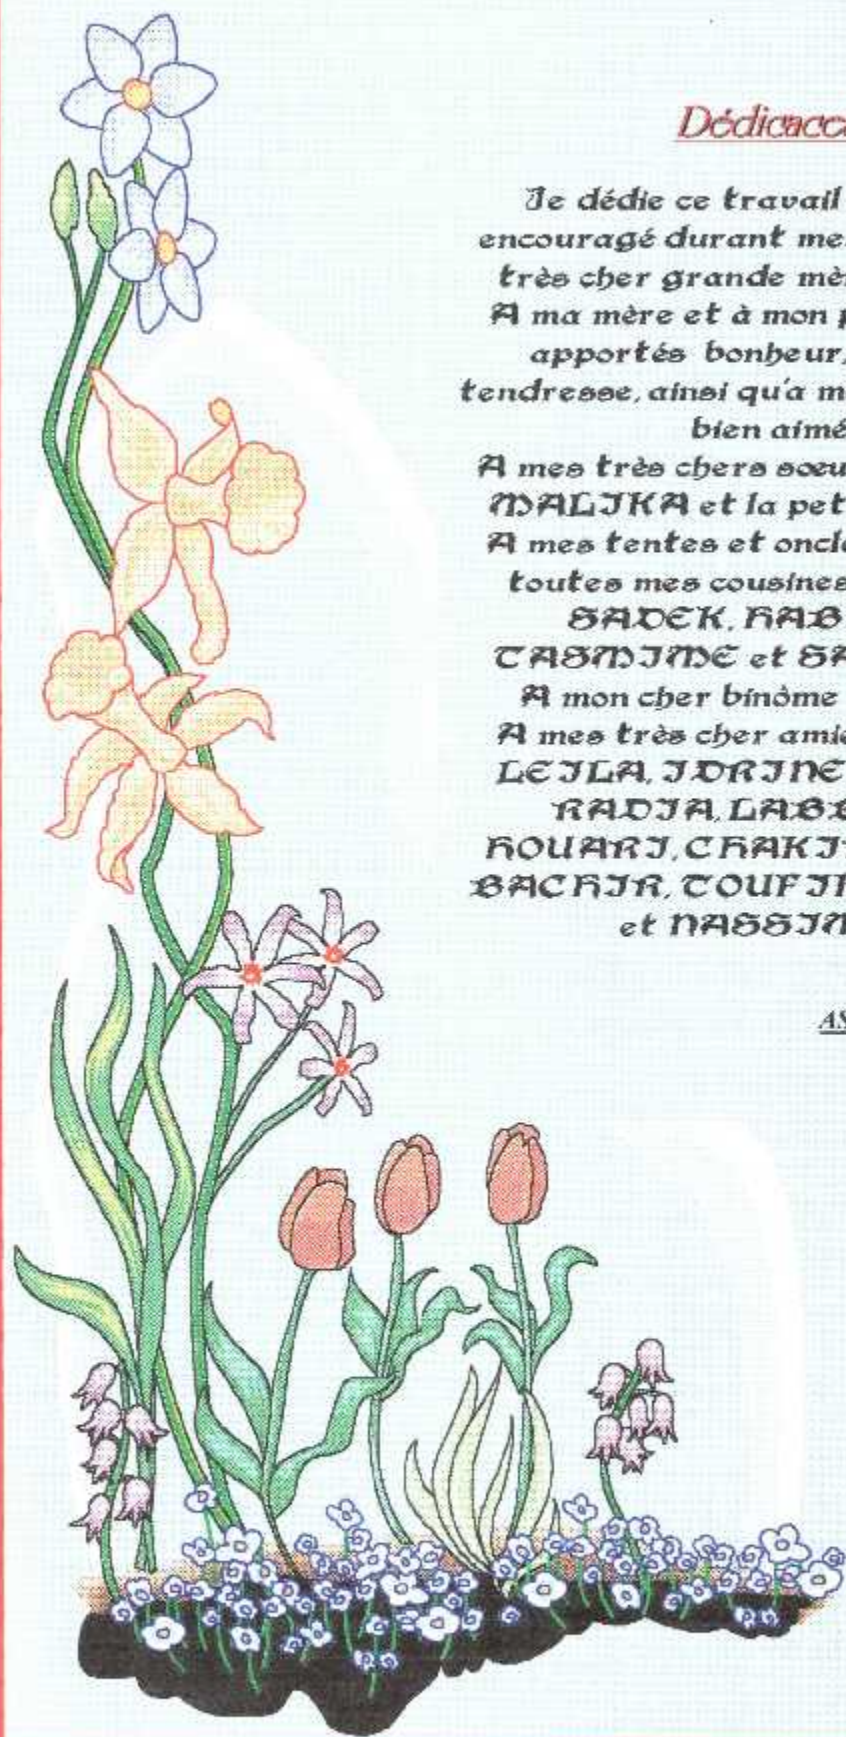 Dédicace
Je dédie ce travail
encouragé durant me
très cher grande mè
A ma mère et à mon p
apportés bonheur,
tendresse, ainsi qu'a m
bien aimé
A mes très chers sœu
MALIKA et la pet
A mes tentes et oncle
toutes mes cousines
SADEK, HAB
TASMIME et SA
A mon cher binôme
A mes très cher amie
LEILA, IDRINE
RADIA, LABB
HOUARI, CHAKI
BACHIR, TOUFI
et NASSIM
AS